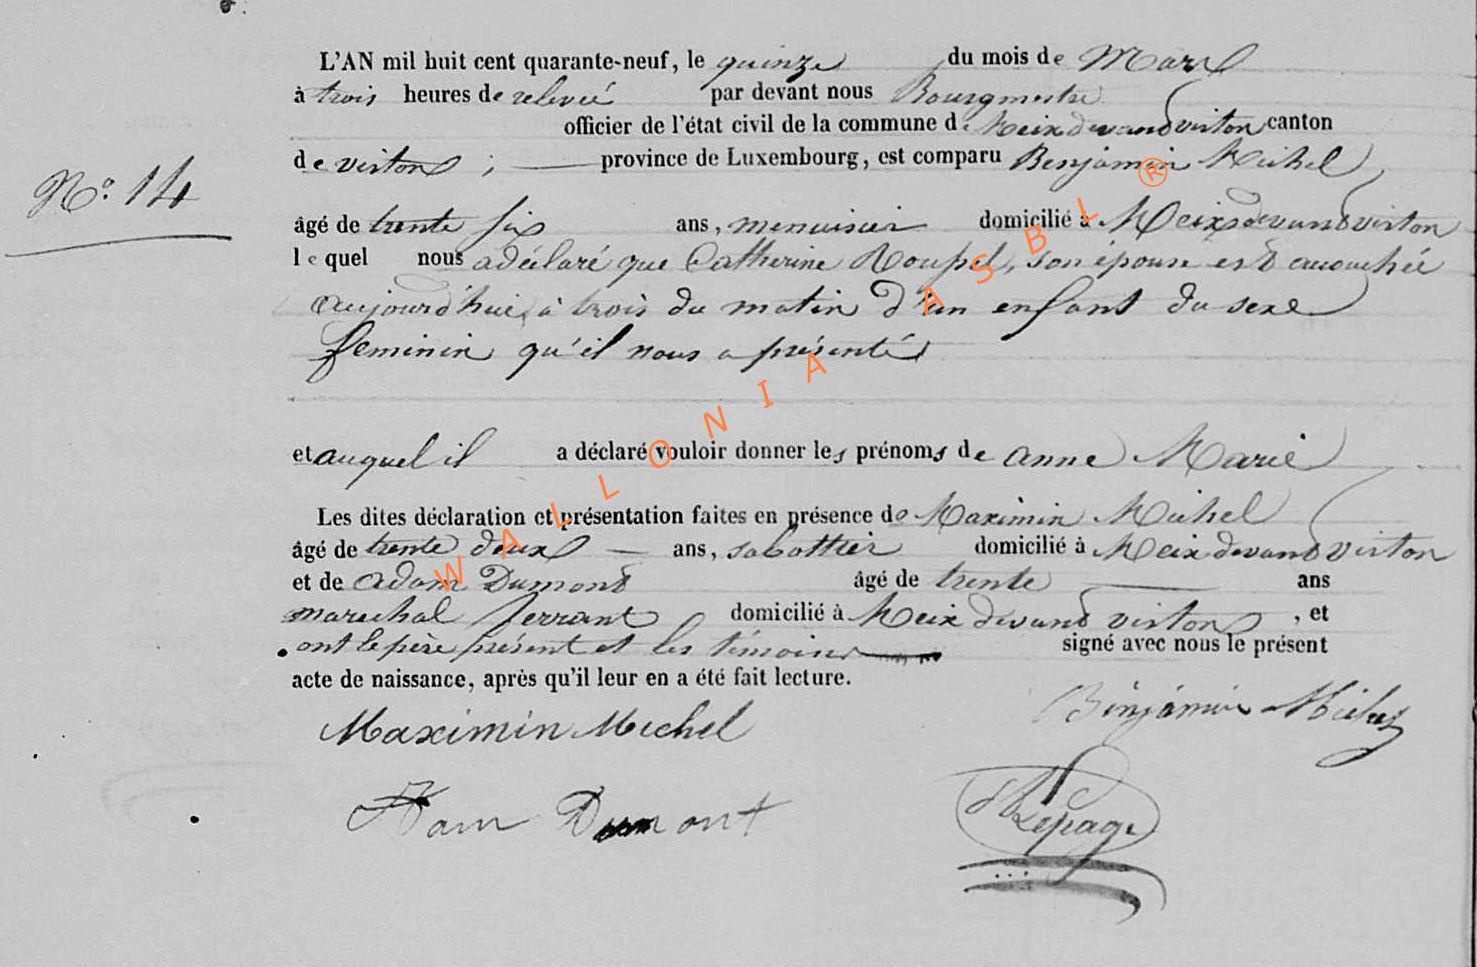 L'AN mil huit cent quarante-neuf, le quinze du mois de Mars
à trois heures de relevée par devant nous Bourgmestre
officier de l'état civil de la commune de Meix devand virton canton
de virton ; province de Luxembourg, est comparu Benjamin Michel
N° 14
âgé de trente six ans, menuisier domicilié à Meix devand virton
lequel nous a déclaré que Catherine Roupel, son épouse est accouchée
aujourd'hui, à trois du matin d'un enfant du sexe
feminin qu'il nous a présenté
et auquel il a déclaré vouloir donner les prénoms de anne Marie
Les dites déclaration et présentation faites en présence de Maximin Michel
âgé de trente deux ans, sabottier domicilié à Meix devand virton
et de adam Dumond âgé de trente ans
marechal ferrant domicilié à Meix devand virton, et
ont le père présent et les témoins signé avec nous le présent
acte de naissance, après qu'il leur en a été fait lecture.
Maximin Michel Binjamin Michel
Adam Dumont
Lepage
WALLONIA ASBL ®